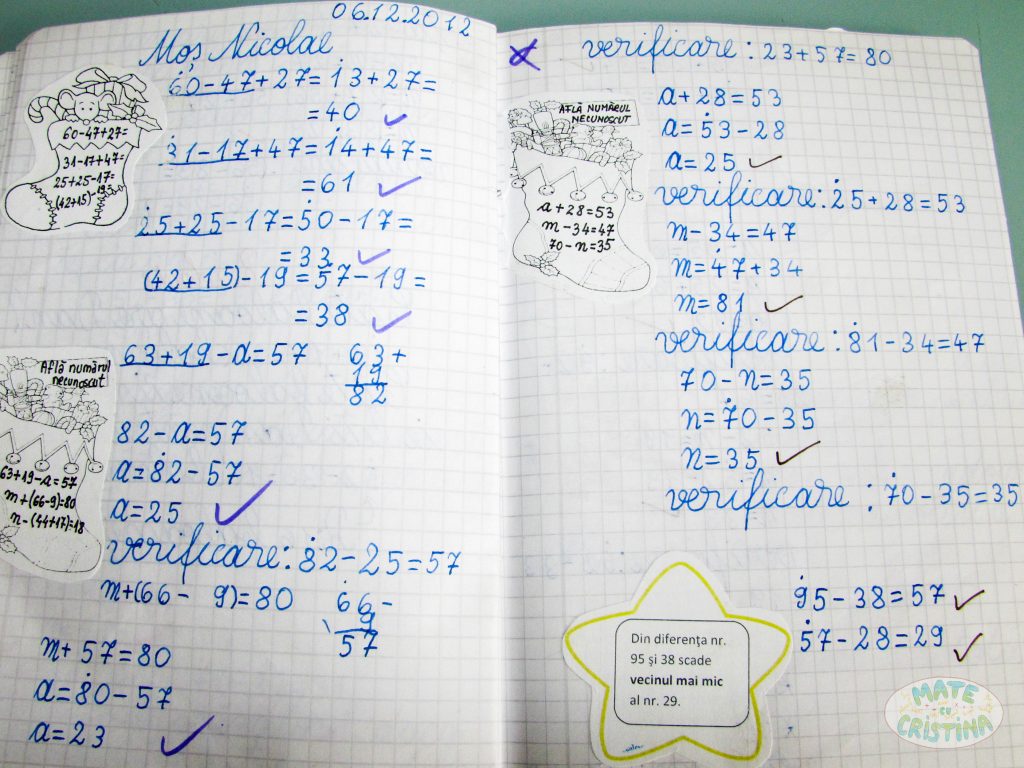 06.12.2012
Moș Nicolae
60-47+27=13+27=
=40
31-17+47=14+47=
=61
25+25-17=50-17=
=33
(42+15)-19=57-19=
=38
60-47+27=
31-17+47=
25+25-17=
(42+15)-19=
63+19-a=57
63+
19
82
82-a=57
a=82-57
a=25
verificare: 82-25=57
m+(66-9)=80
66-
9
57
m+57=80
a=80-57
a=23
Află numărul
necunoscut
63+19-a=57
m+(66-9)=80
n-(44+17)=18
verificare: 23+57=80
a+28=53
a=53-28
a=25
verificare: 25+28=53
m-34=47
m=47+34
m=81
verificare: 81-34=47
70-n=35
n=70-35
n=35
verificare: 70-35=35
AFLĂ NUMĂRUL
NECUNOSCUT
a+28=53
m-34=47
70-n=35
95-38=57
57-28=29
Din diferența nr.
95 și 38 scade
vecinul mai mic
al nr. 29.
MATE
cu
CRISTINA